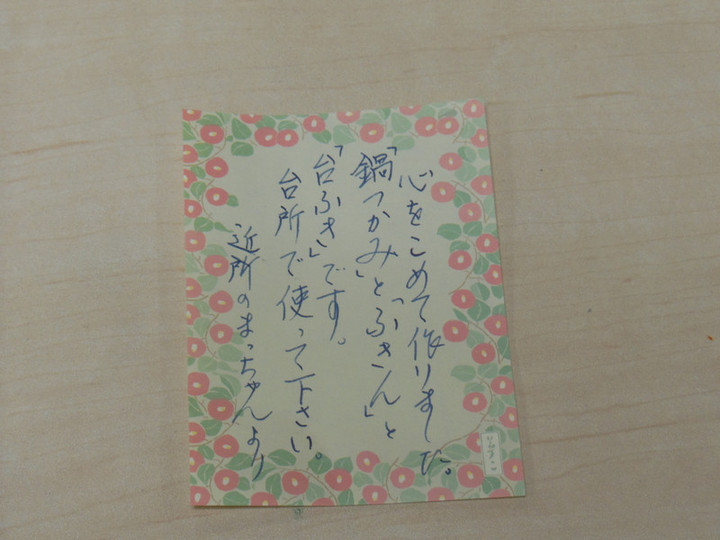 心をこめて作りました。
「鍋つかみ」と「ふきん」と
「台ふき」です。
台所で使って下さい。
近所のまっちゃんより